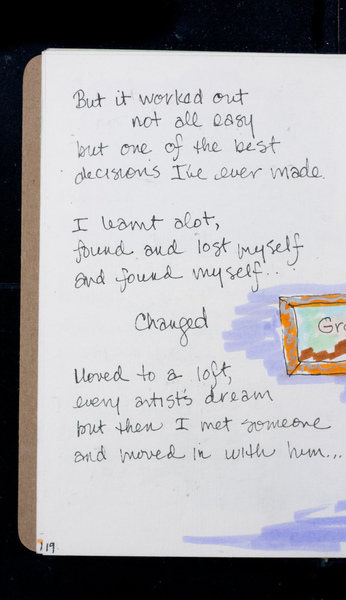 But it worked out
not all easy
but one of the best
decisions I've ever made.
I learnt alot,
found and lost myself
and found myself...
Changed
Gro
Moved to a loft,
every artist's dream
but then I met someone
and moved in with him...
19